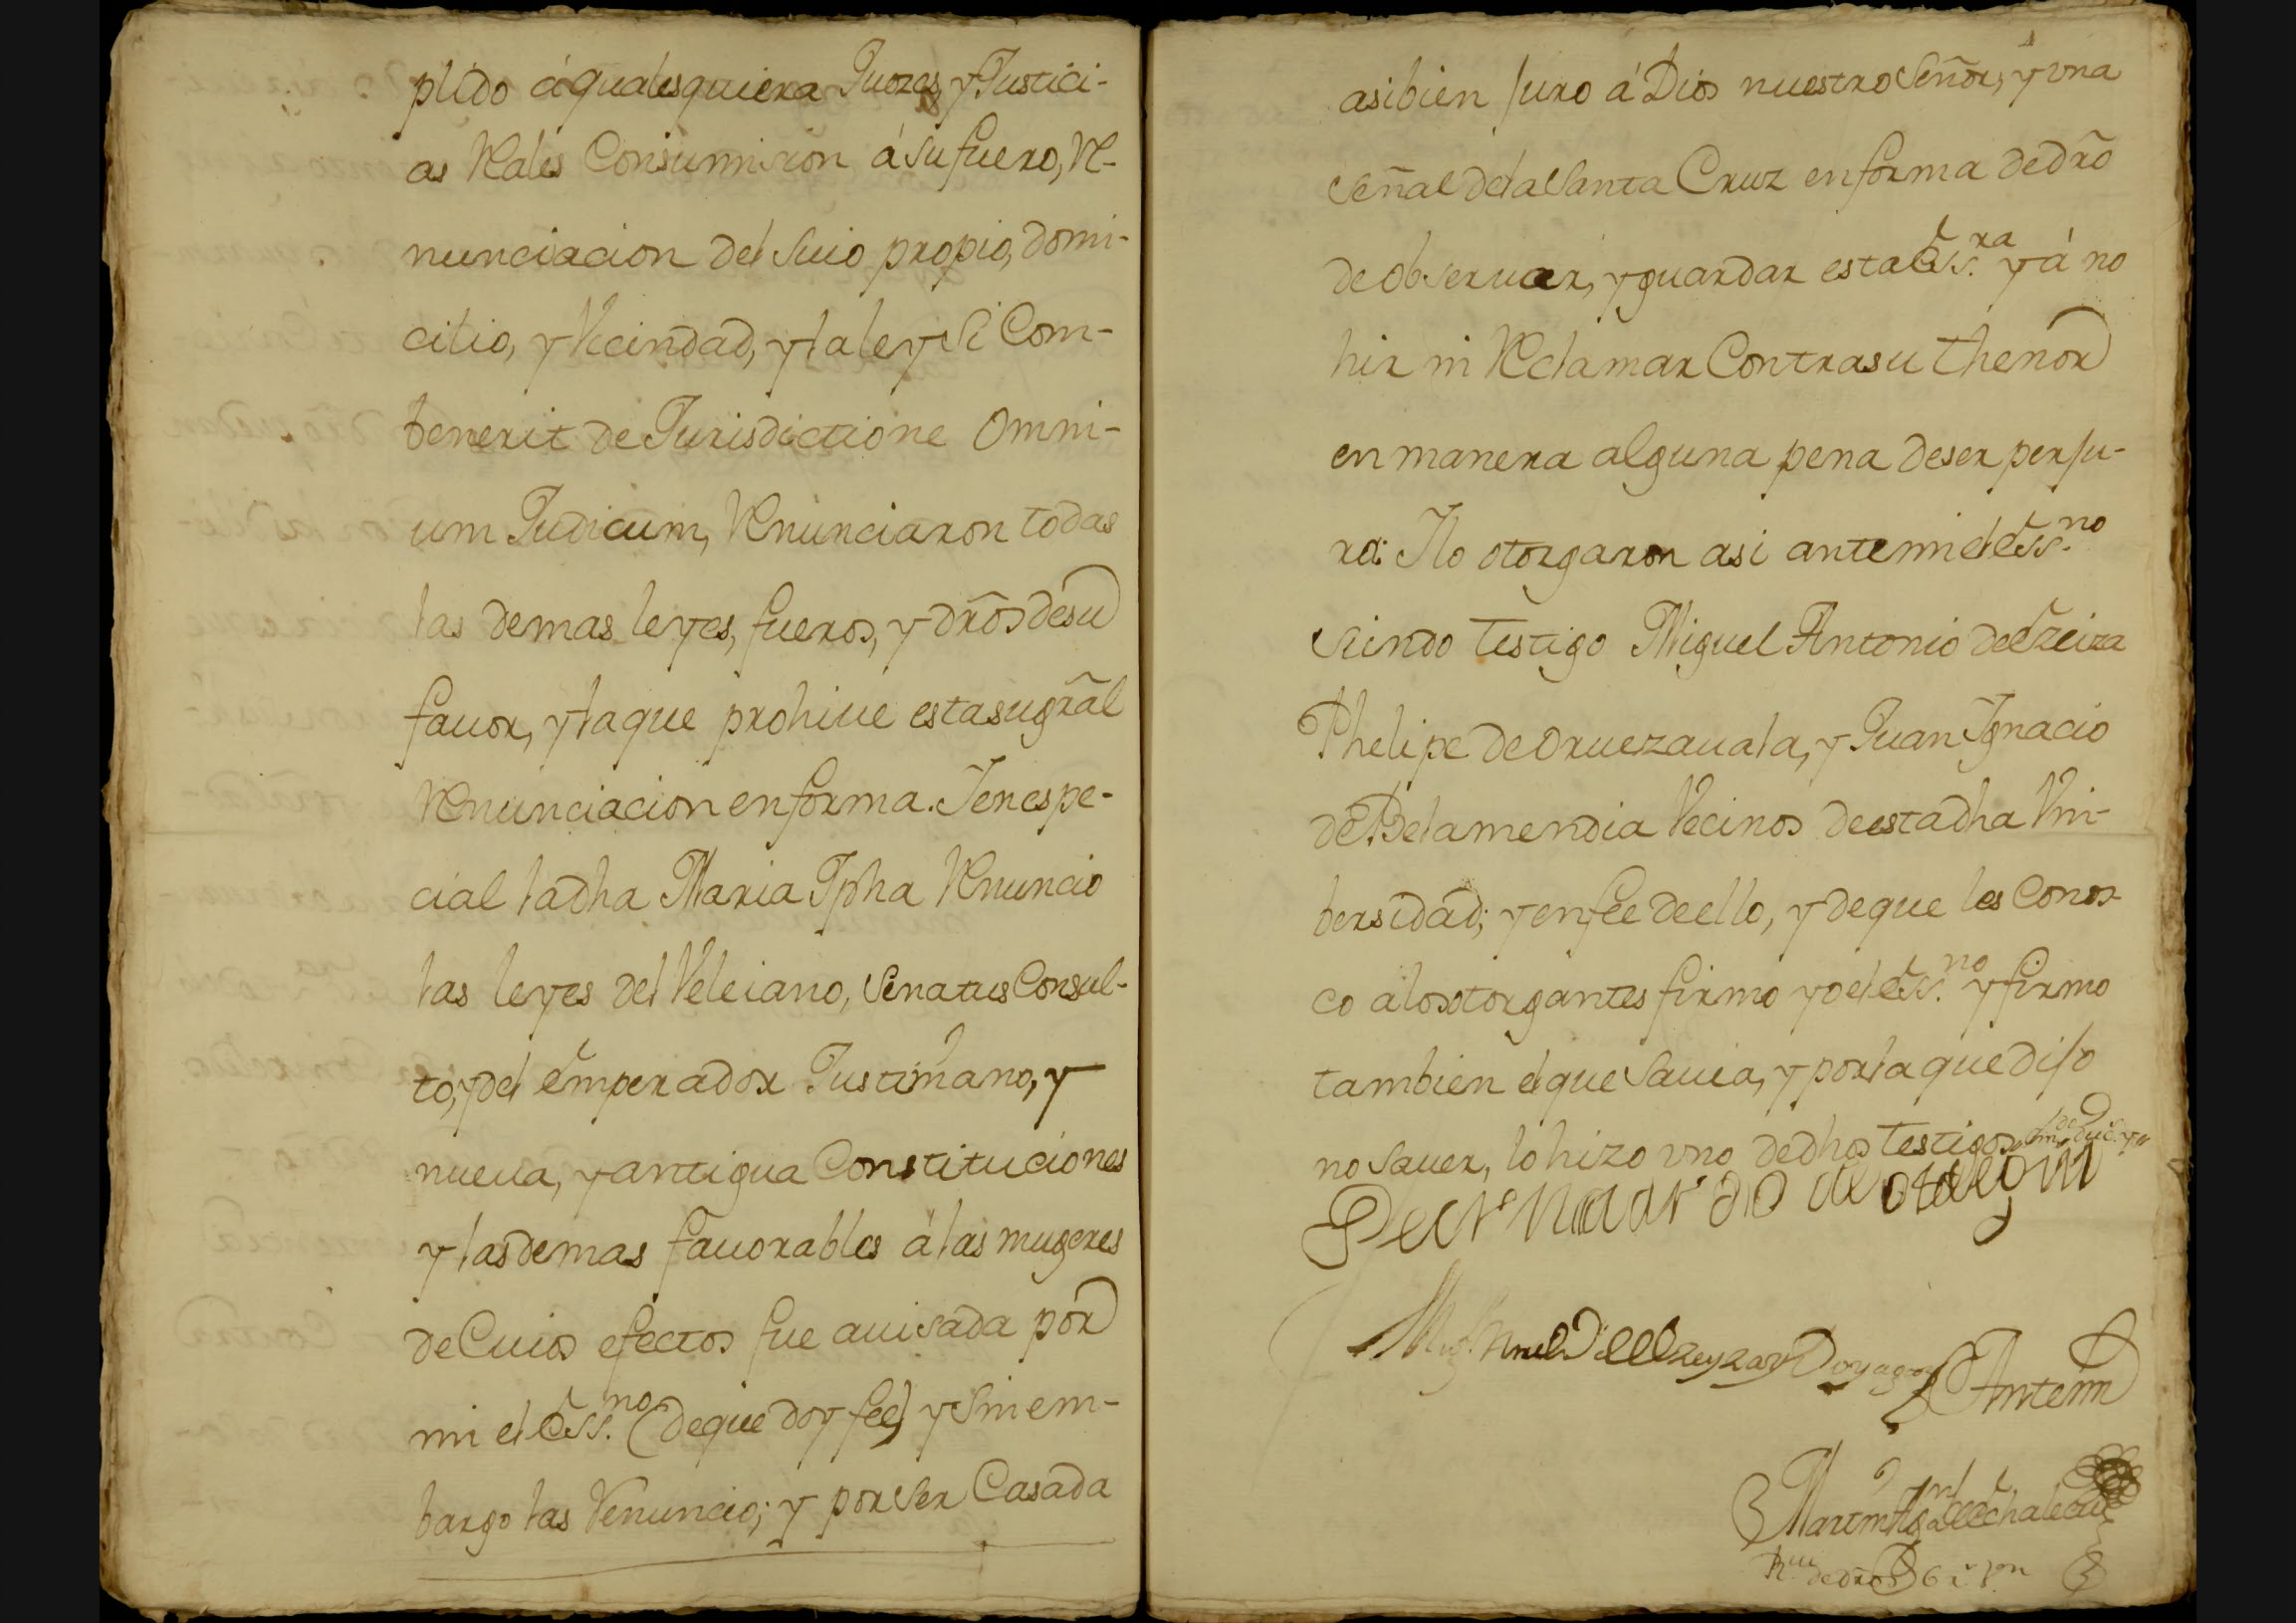 plido á qualesquiera Juozes, y Justici-
as Rales Consumision á su fuero, Re-
nunciacion del Suio propio, domi-
cilio, y Vecindad, y la ley Si Com-
benerit de Jurisdictione Omni-
um Judicum, Renunciaron todas
las demas leyes, fueros, y dr̃os de su
fauor, y la que prohiue esta su gr̃al
Renunciacion en forma. Y en espe-
cial la dha Maria Jpha Renuncio
las leyes del Veleiano, Senatus Consul-
to, y del emperador Justiniano, y
nueua, y antigua Constituciones
y las demas fauorables á las mugeres
de Cuios efectos fue auisada por
mi el ess.no (de que doy fee) y Sin em-
bargo las Renuncio; y por Ser Casada
asibien Juro á Dios nuestro Señor, y vna
Señal de la Santa Cruz en forma de dr̃o
de Obseruar, y guardar esta ess.ra y á no
hir ni Reclamar Contra su thenor
en manera alguna pena de ser perju-
ra: Y lo otorgaron asi ante mi el ess.no
Siendo Testigo Miguel Antonio de ezeiza
Phelipe de Oruezauala, y Juan Ygnacio
de Belamendia Vecinos de esta dha Vni-
bersidad; y en fee de ello, y de que les Conoz-
co a los otorgantes firmo yo el ess.no y firmo
tambien el que Sauia, y por la que dijo
no Sauer, lo hizo vno de dhos Testigos
Bernardo de otalegui
Ante mi
Martin